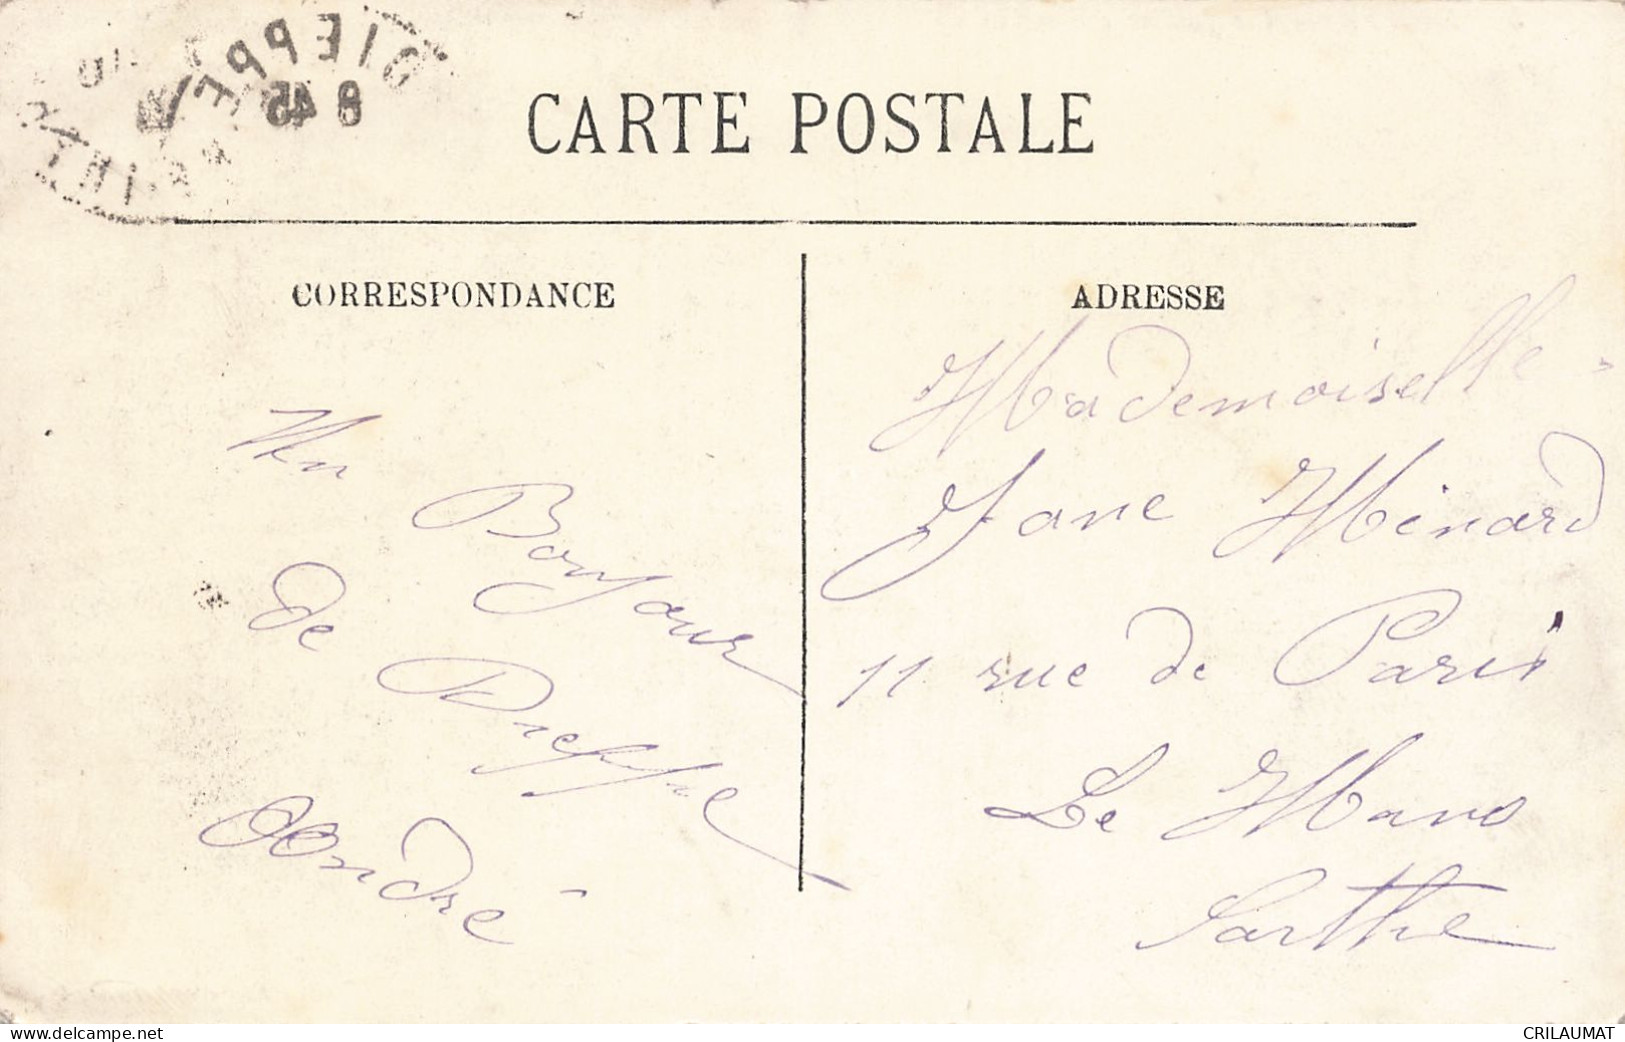 DIEPPE
8 45
CARTE POSTALE
CORRESPONDANCE
ADRESSE
Un
Bonjour
de
Dieppe
André
Mademoiselle
Jane Ménard
11 rue de Paris
Le Mans
Sarthe
www.delcampe.net
CRILAUMAT